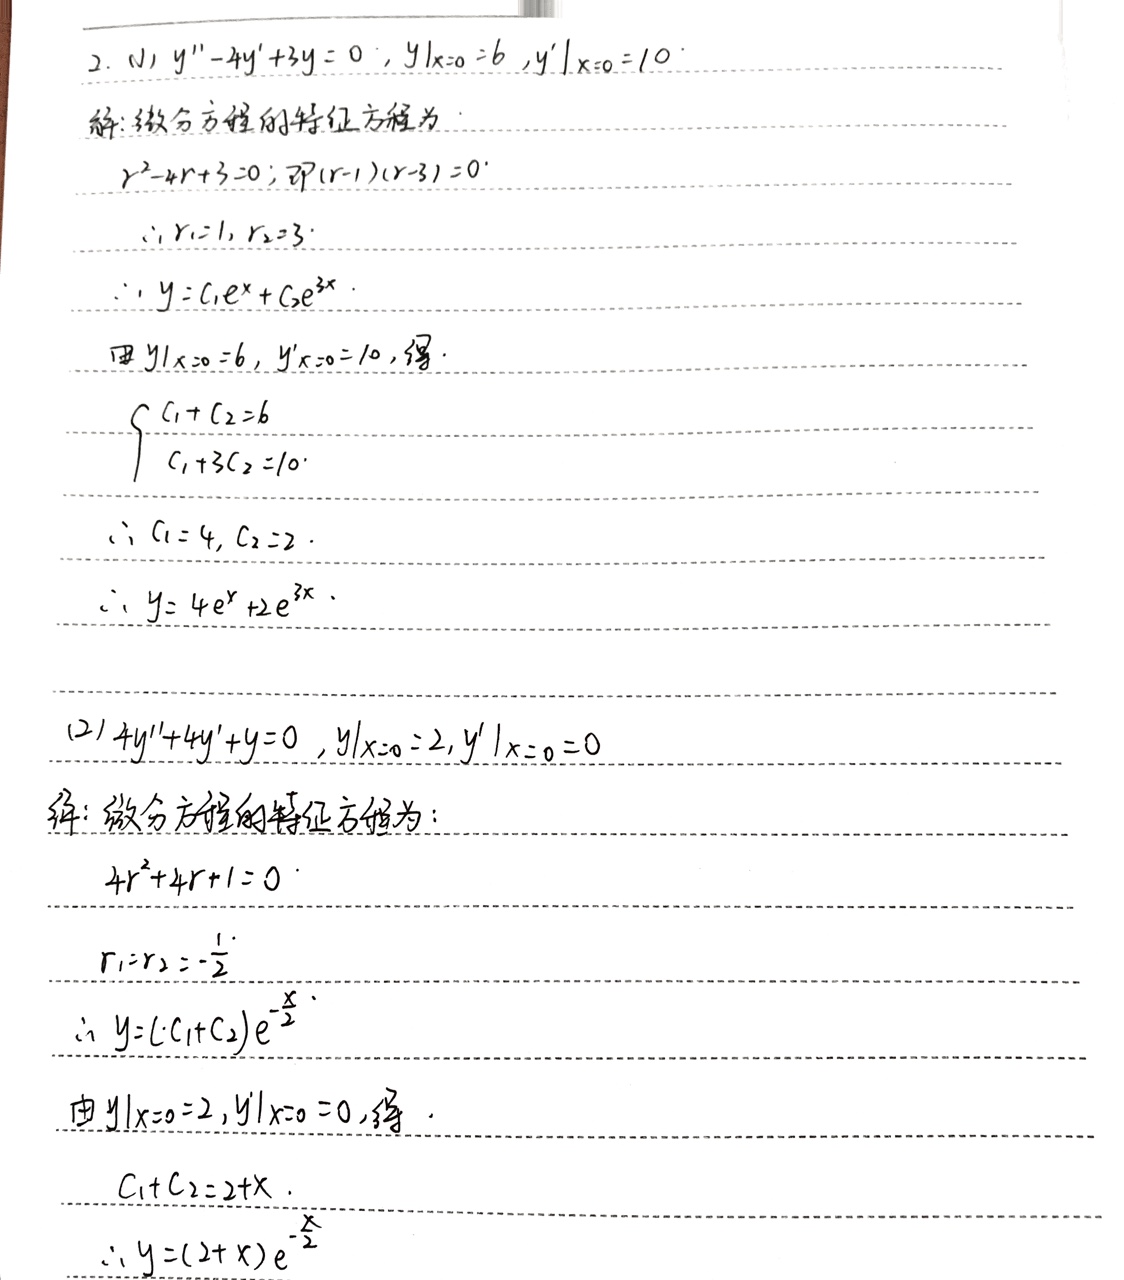 2. (1) y''-4y'+3y=0, y|x=0=6, y'|x=0=10.
解:微分方程的特征方程为
r²-4r+3=0; 即(r-1)(r-3)=0.
∴ r₁=1, r₂=3.
∴ y=C₁eˣ+C₂e³ˣ.
由y|x=0=6, y'x=0=10,得.
{C₁+C₂=6
C₁+3C₂=10.
∴ C₁=4, C₂=2.
∴ y=4eˣ+2e³ˣ.
(2) 4y''+4y'+y=0, y|x=0=2, y'|x=0=0
解:微分方程的特征方程为:
4r²+4r+1=0.
r₁=r₂=-1/2.
∴ y=(C₁+C₂)e^(-x/2).
由y|x=0=2, y'|x=0=0,得.
C₁+C₂=2+x.
∴ y=(2+x)e^(-x/2)